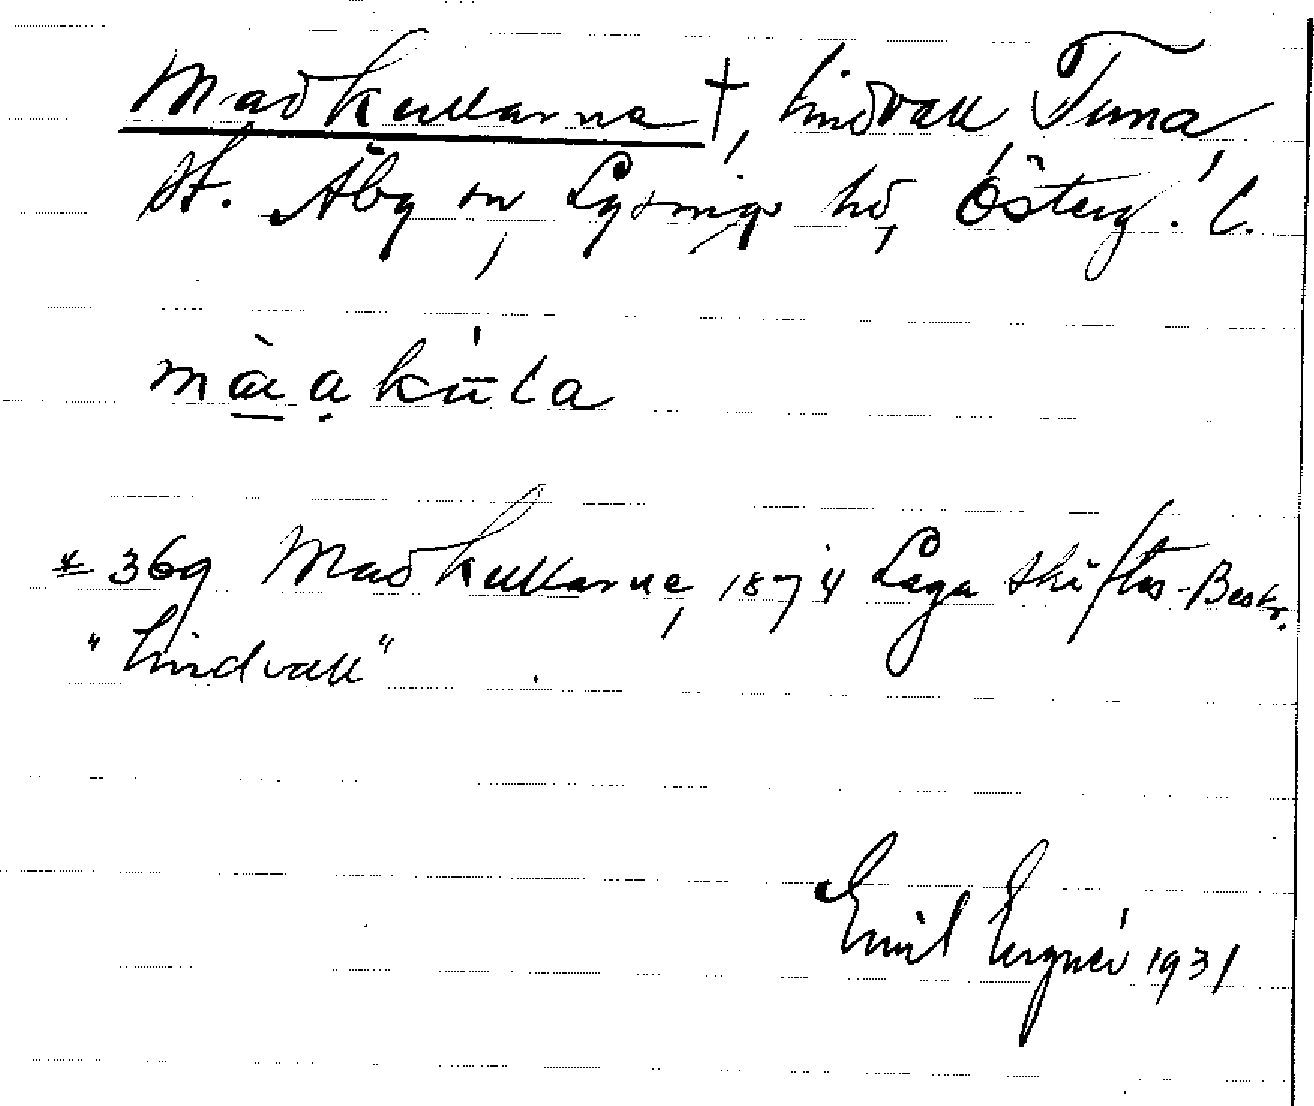 Madkullarna †, Lindvall Tuna
St. Åby sn, Lysings hd, Österg. l.
màạkūla
* 369 Madkullarne, 1874 Laga Skiftes-Beskr.
"Lindvall"
Emil 1931